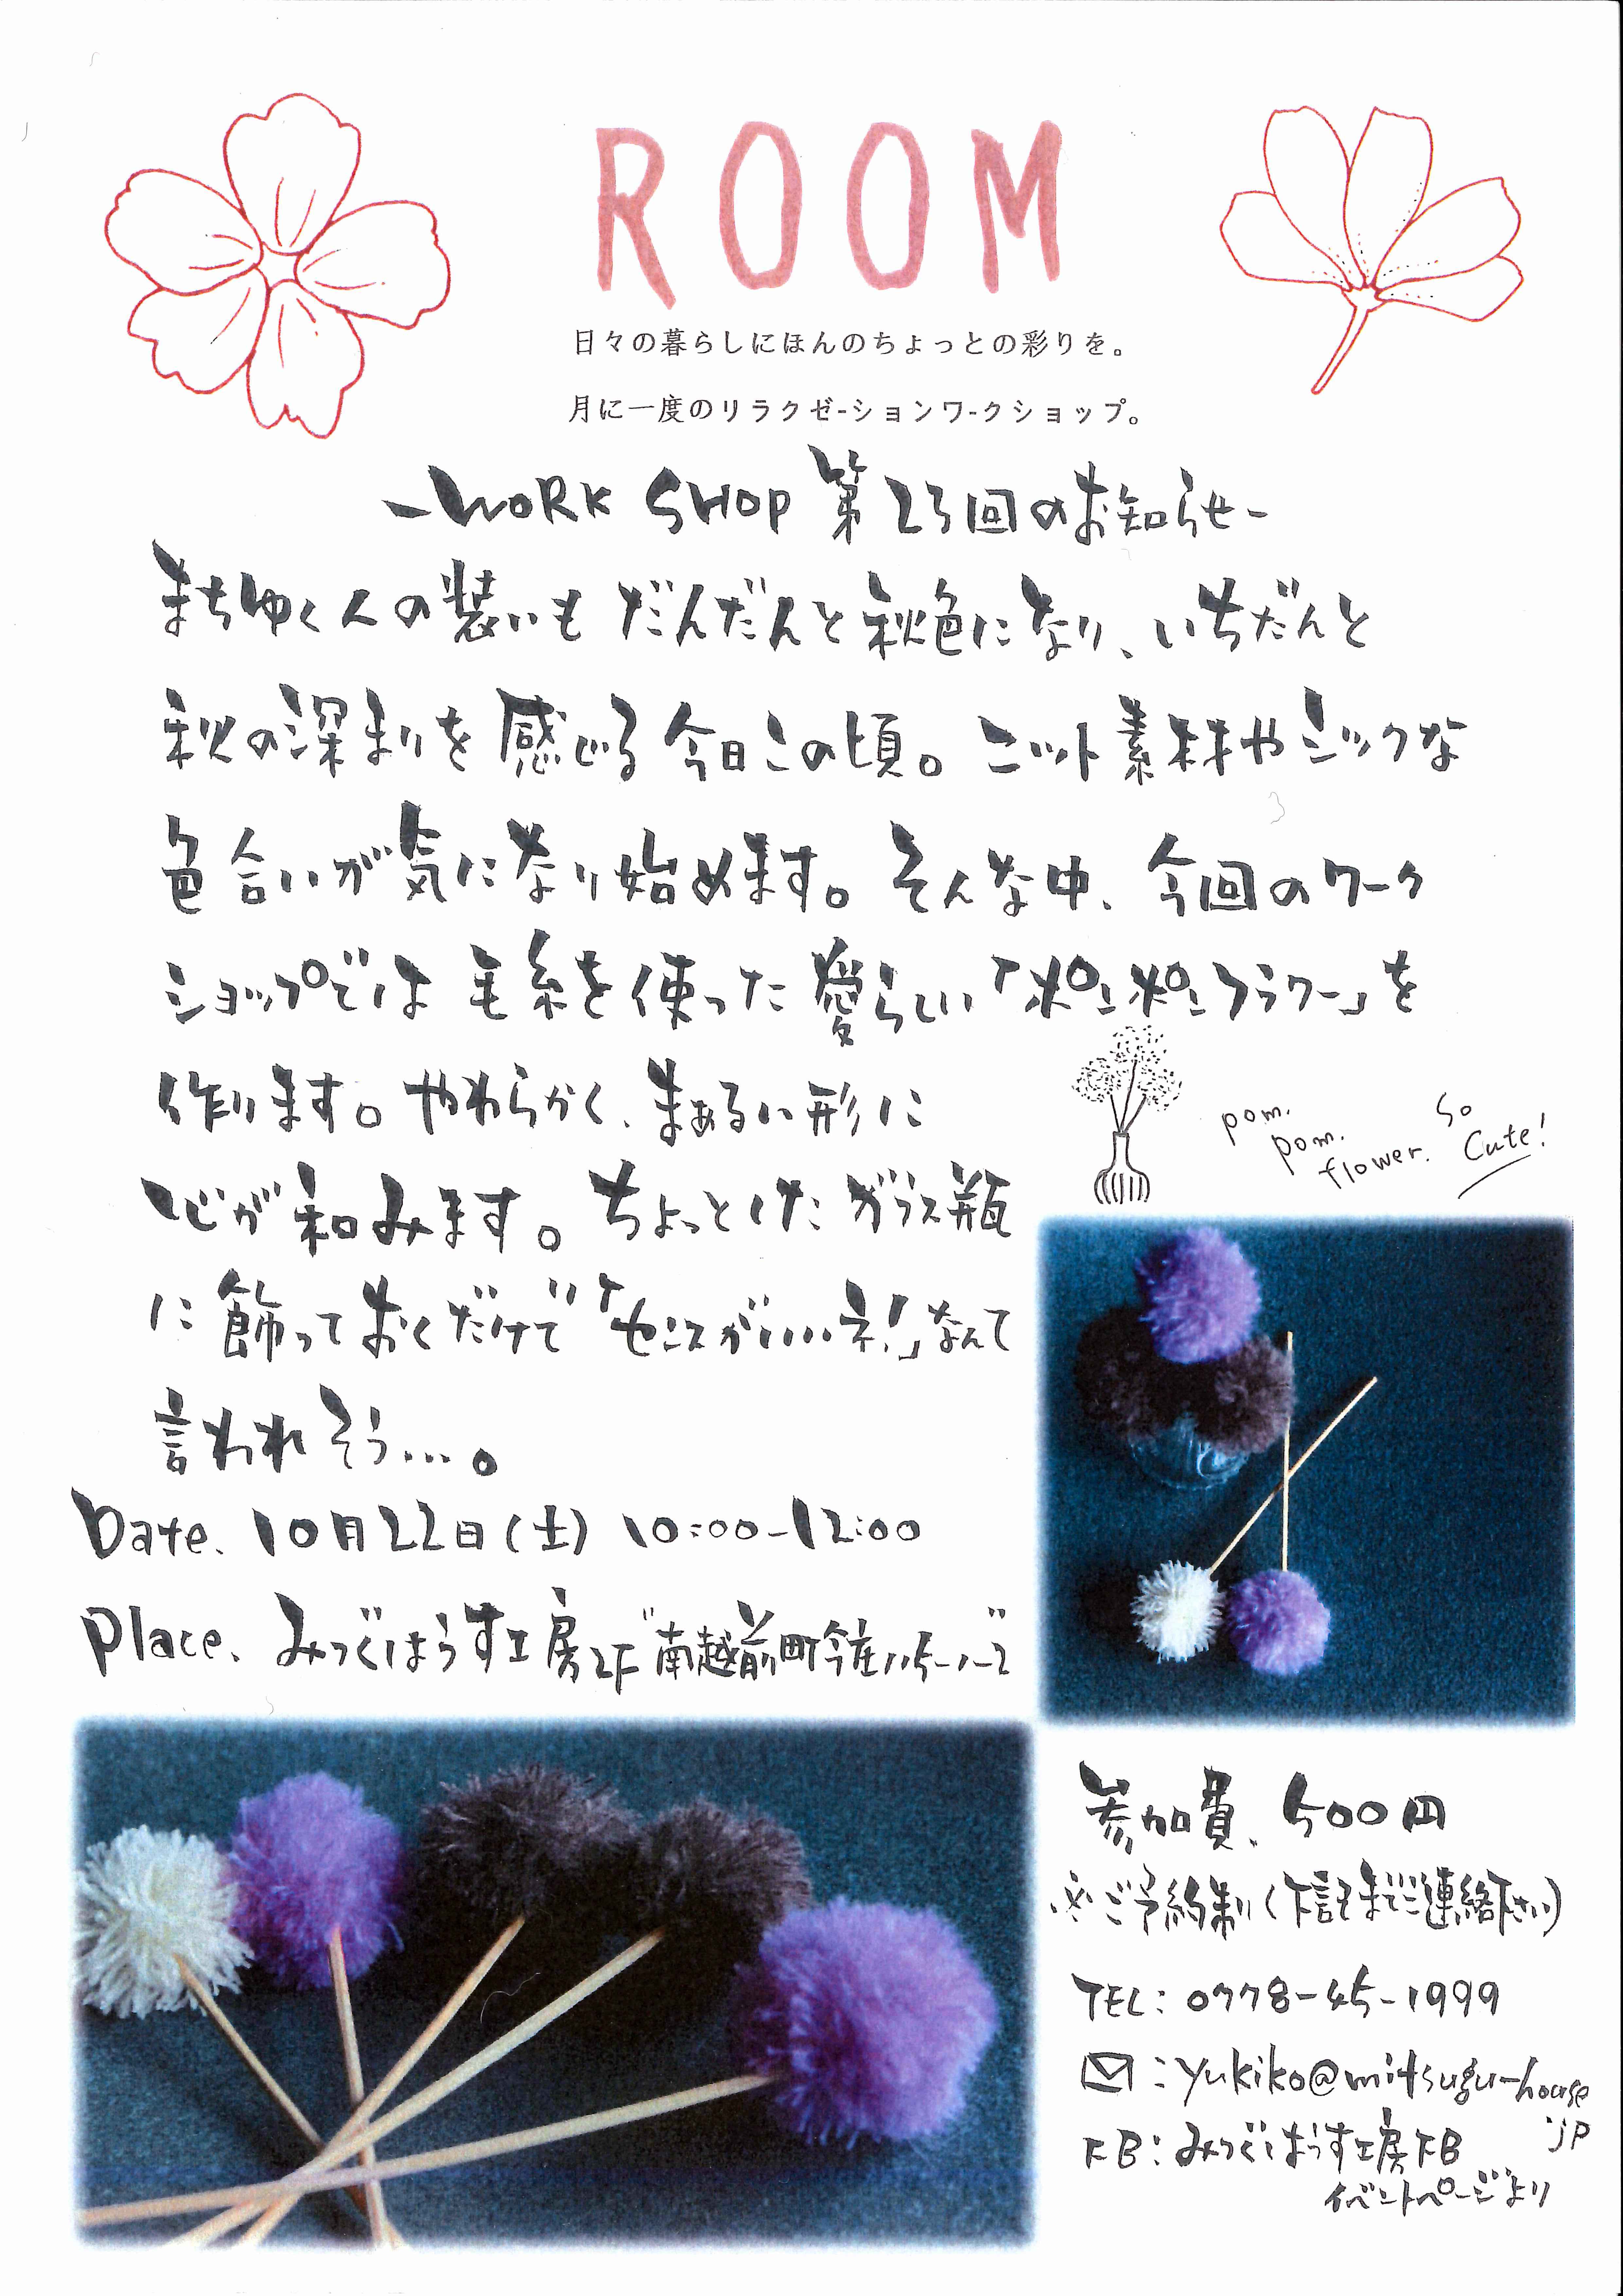 ROOM
日々の暮らしにほんのちょっとの彩りを。
月に一度のリラクゼ-ションワ-クショップ。
-WORK SHOP 第23回のお知らせ-
まちゆく人の装いも だんだんと秋色になり、いちだんと
秋の深まりを感じる今日この頃。ニット素材やシックな
色合いが気になり始めます。そんな中、今回のワーク
ショップでは毛糸を使った愛らしい「ポンポンフラワー」を
作ります。やわらかく、まぁるい形に
心が和みます。ちょっとしたガラス瓶
に飾っておくだけで「センスがいいネ!」なんて
言われそう...。
pom.
pom.
flower.
so
Cute!
Date. 10月22日(土) 10:00-12:00
Place. みつぐはうす工房2F "南越前町今庄115-1-2"
参加費. 500円
※ご予約制(下記までご連絡下さい)
TEL: 0778-45-1999
:yukiko@mitsugu-house
.jp
FB:みつぐはうす工房FB
イベントページより